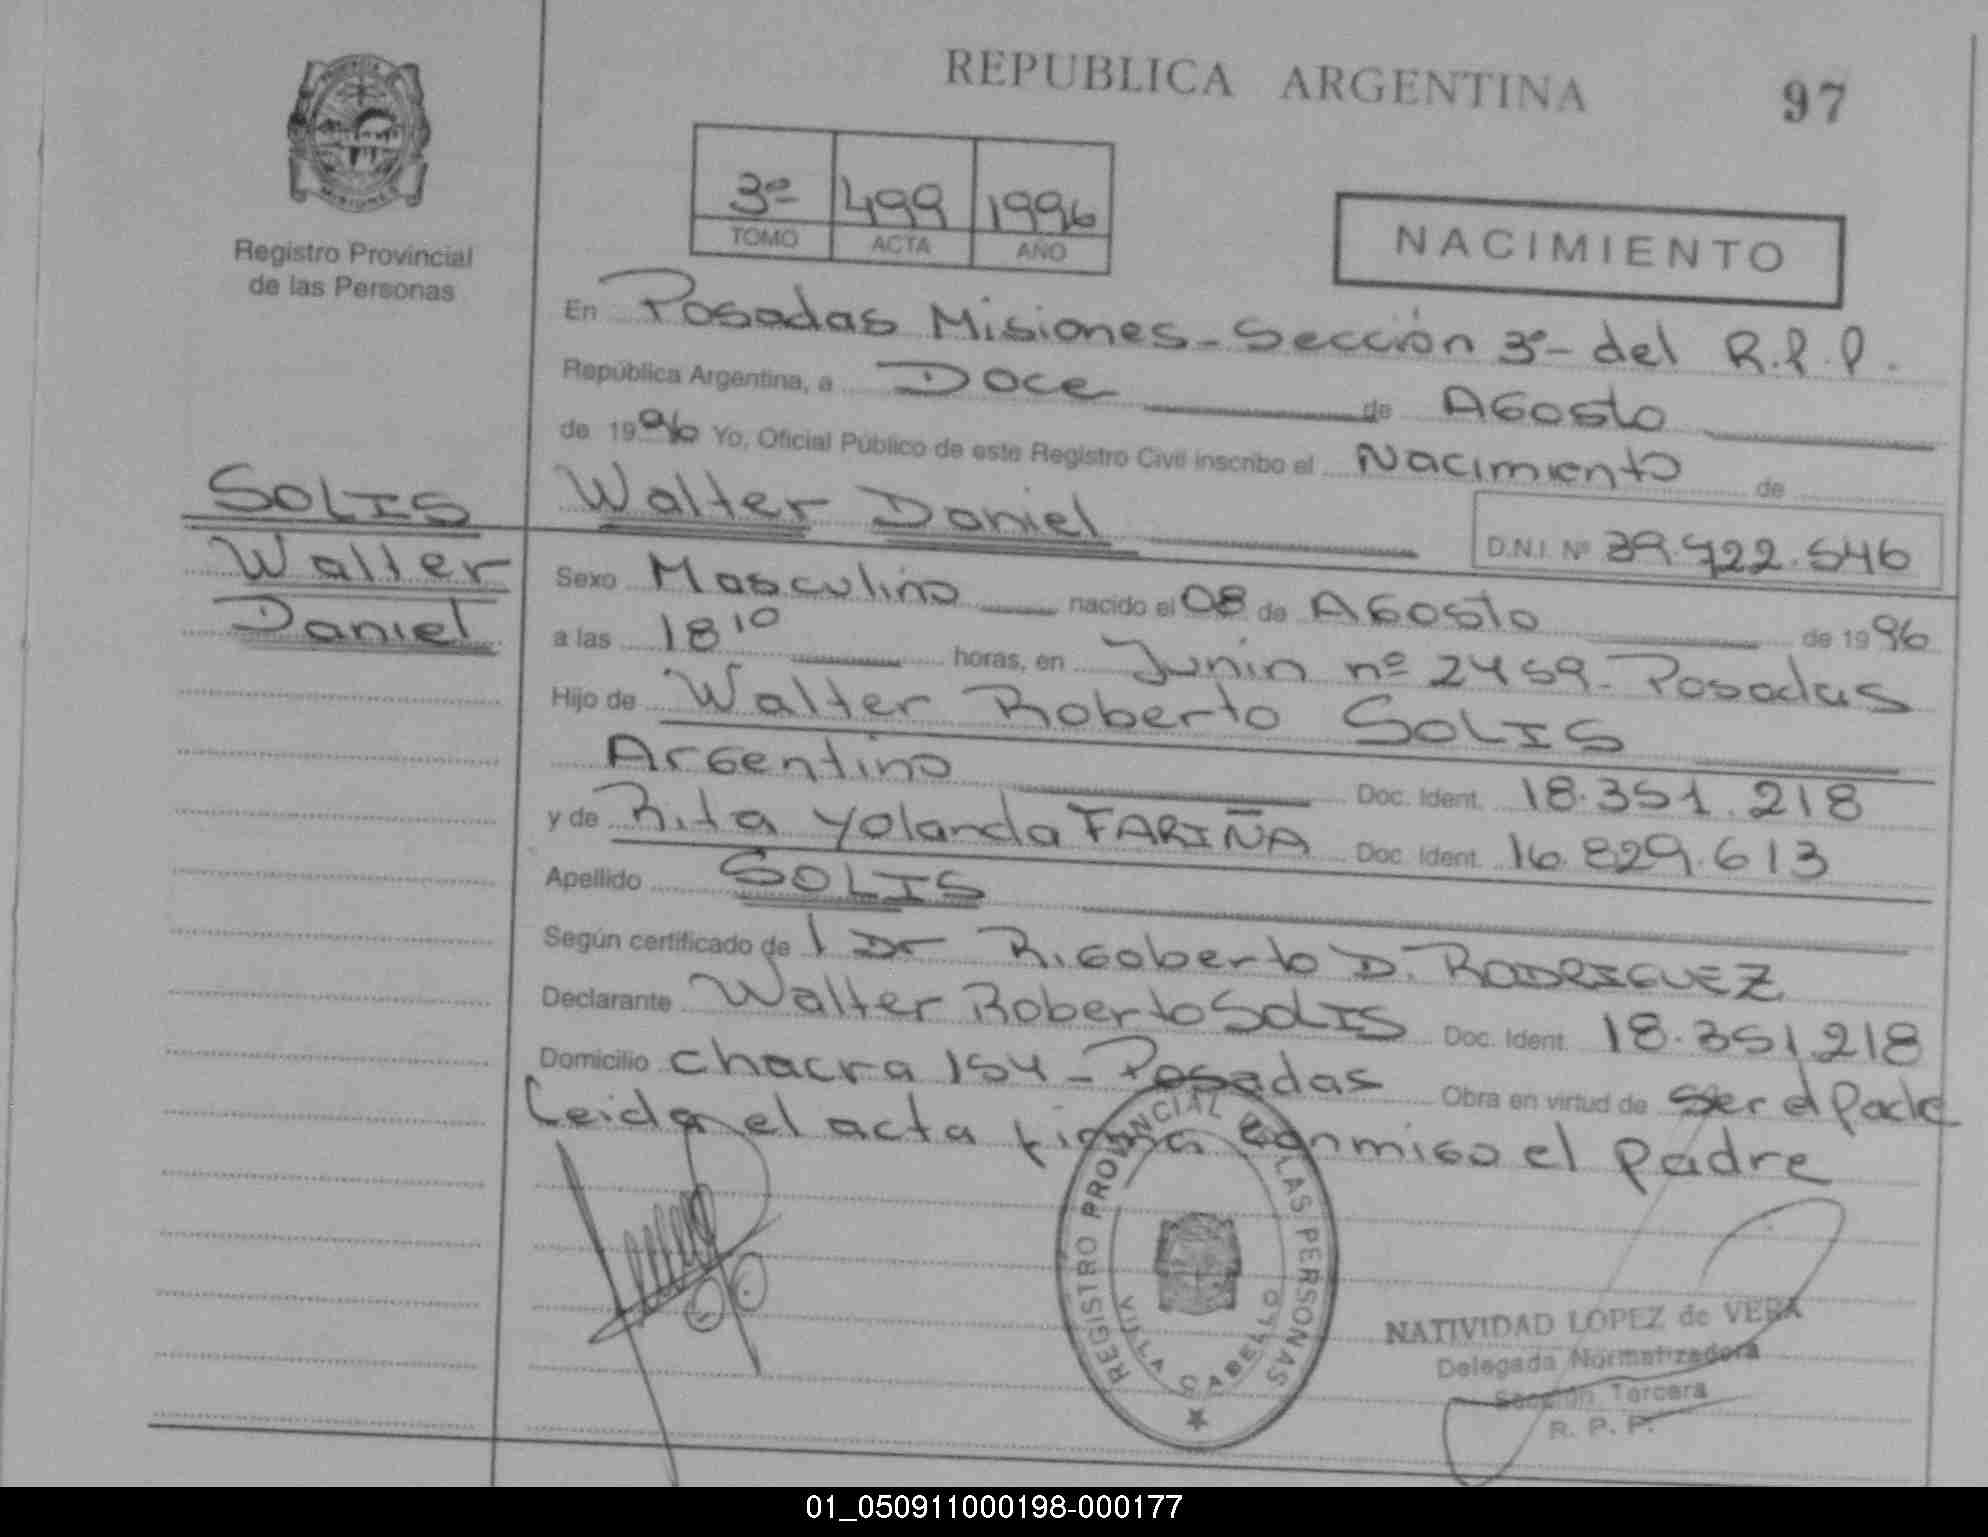 REPUBLICA ARGENTINA
97
PROVINCIA DE MISIONES
Registro Provincial
de las Personas
3º 499 1996
TOMO ACTA AÑO
NACIMIENTO
En Posadas Misiones - Sección 3º - del R.P.P.
República Argentina, a Doce de Agosto
de 1996 Yo, Oficial Público de este Registro Civil inscribo el Nacimiento de
SOLIS
Walter
Daniel
Walter Daniel D.N.I. Nº 39.722.546
Sexo Masculino nacido el 08 de Agosto de 1996
a las 18 10 horas, en Junin nº 2459 - Posadas
Hijo de Walter Roberto SOLIS
Argentino Doc. Ident. 18.351.218
y de Rita Yolanda FARIÑA Doc. Ident. 16.829.613
Apellido SOLIS
Según certificado de l Dr Rigoberto D. RODRIGUEZ
Declarante Walter Roberto SOLIS Doc. Ident. 18.351.218
Domicilio chacra 154 - Posadas Obra en virtud de ser el padre
Leida el acta firma conmigo el padre
REGISTRO PROVINCIAL DE LAS PERSONAS
VILLA CABELLO
NATIVIDAD LOPEZ de VERA
Delegada Normatizadora
Sección Tercera
R. P. P.
01_050911000198-000177